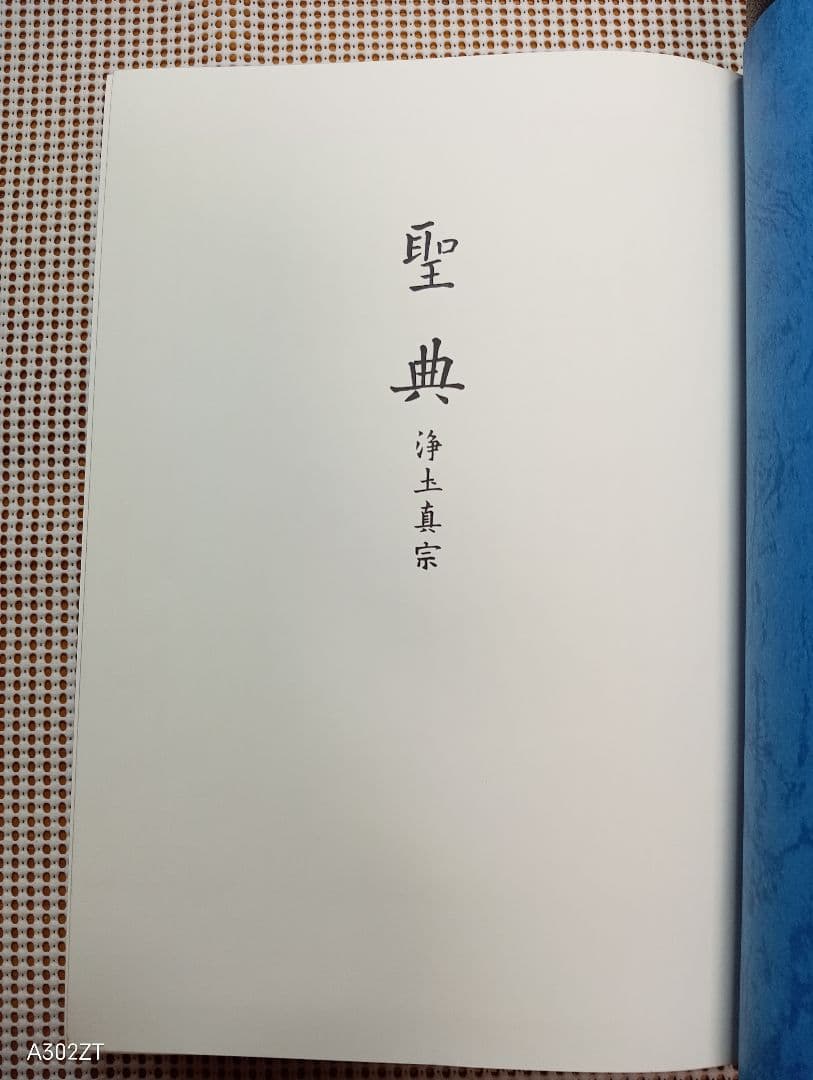 聖典
浄圡真宗
A302ZT